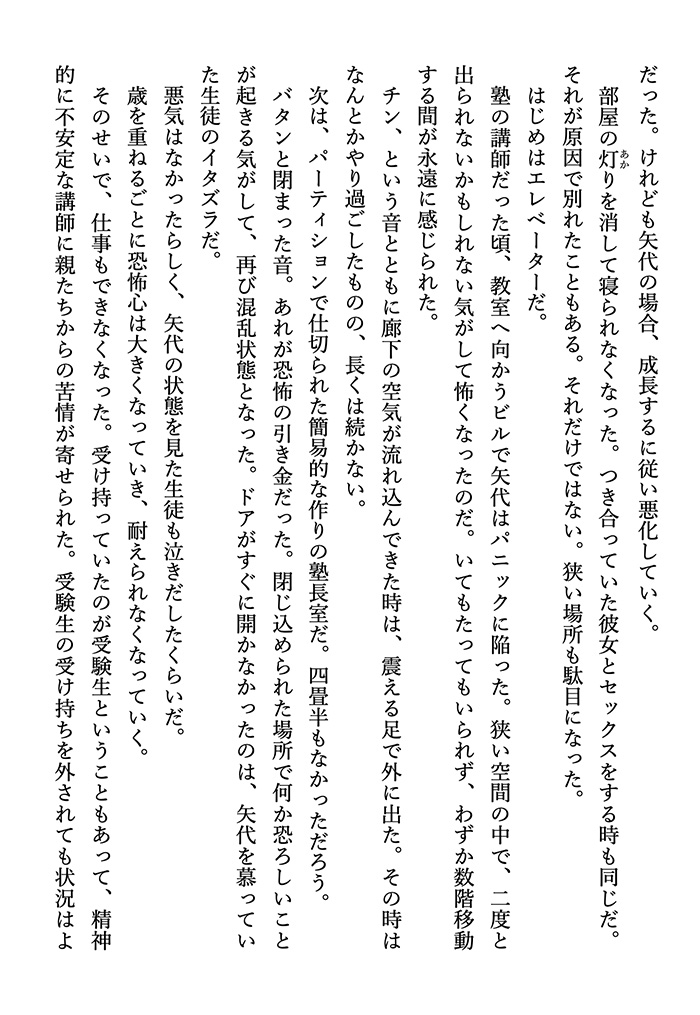 だった。けれども矢代の場合、成長するに従い悪化していく。
部屋の灯りを消して寝られなくなった。つき合っていた彼女とセックスをする時も同じだ。
あか
それが原因で別れたこともある。それだけではない。狭い場所も駄目になった。
はじめはエレベーターだ。
塾の講師だった頃、教室へ向かうビルで矢代はパニックに陥った。狭い空間の中で、二度と
出られないかもしれない気がして怖くなったのだ。いてもたってもいられず、わずか数階移動
する間が永遠に感じられた。
チン、という音とともに廊下の空気が流れ込んできた時は、震える足で外に出た。その時は
なんとかやり過ごしたものの、長くは続かない。
次は、パーティションで仕切られた簡易的な作りの塾長室だ。四畳半もなかっただろう。
バタンと閉まった音。あれが恐怖の引き金だった。閉じ込められた場所で何か恐ろしいこと
が起きる気がして、再び混乱状態となった。ドアがすぐに開かなかったのは、矢代を慕ってい
た生徒のイタズラだ。
悪気はなかったらしく、矢代の状態を見た生徒も泣きだしたくらいだ。
歳を重ねるごとに恐怖心は大きくなっていき、耐えられなくなっていく。
そのせいで、仕事もできなくなった。受け持っていたのが受験生ということもあって、精神
的に不安定な講師に親たちからの苦情が寄せられた。受験生の受け持ちを外されても状況はよ